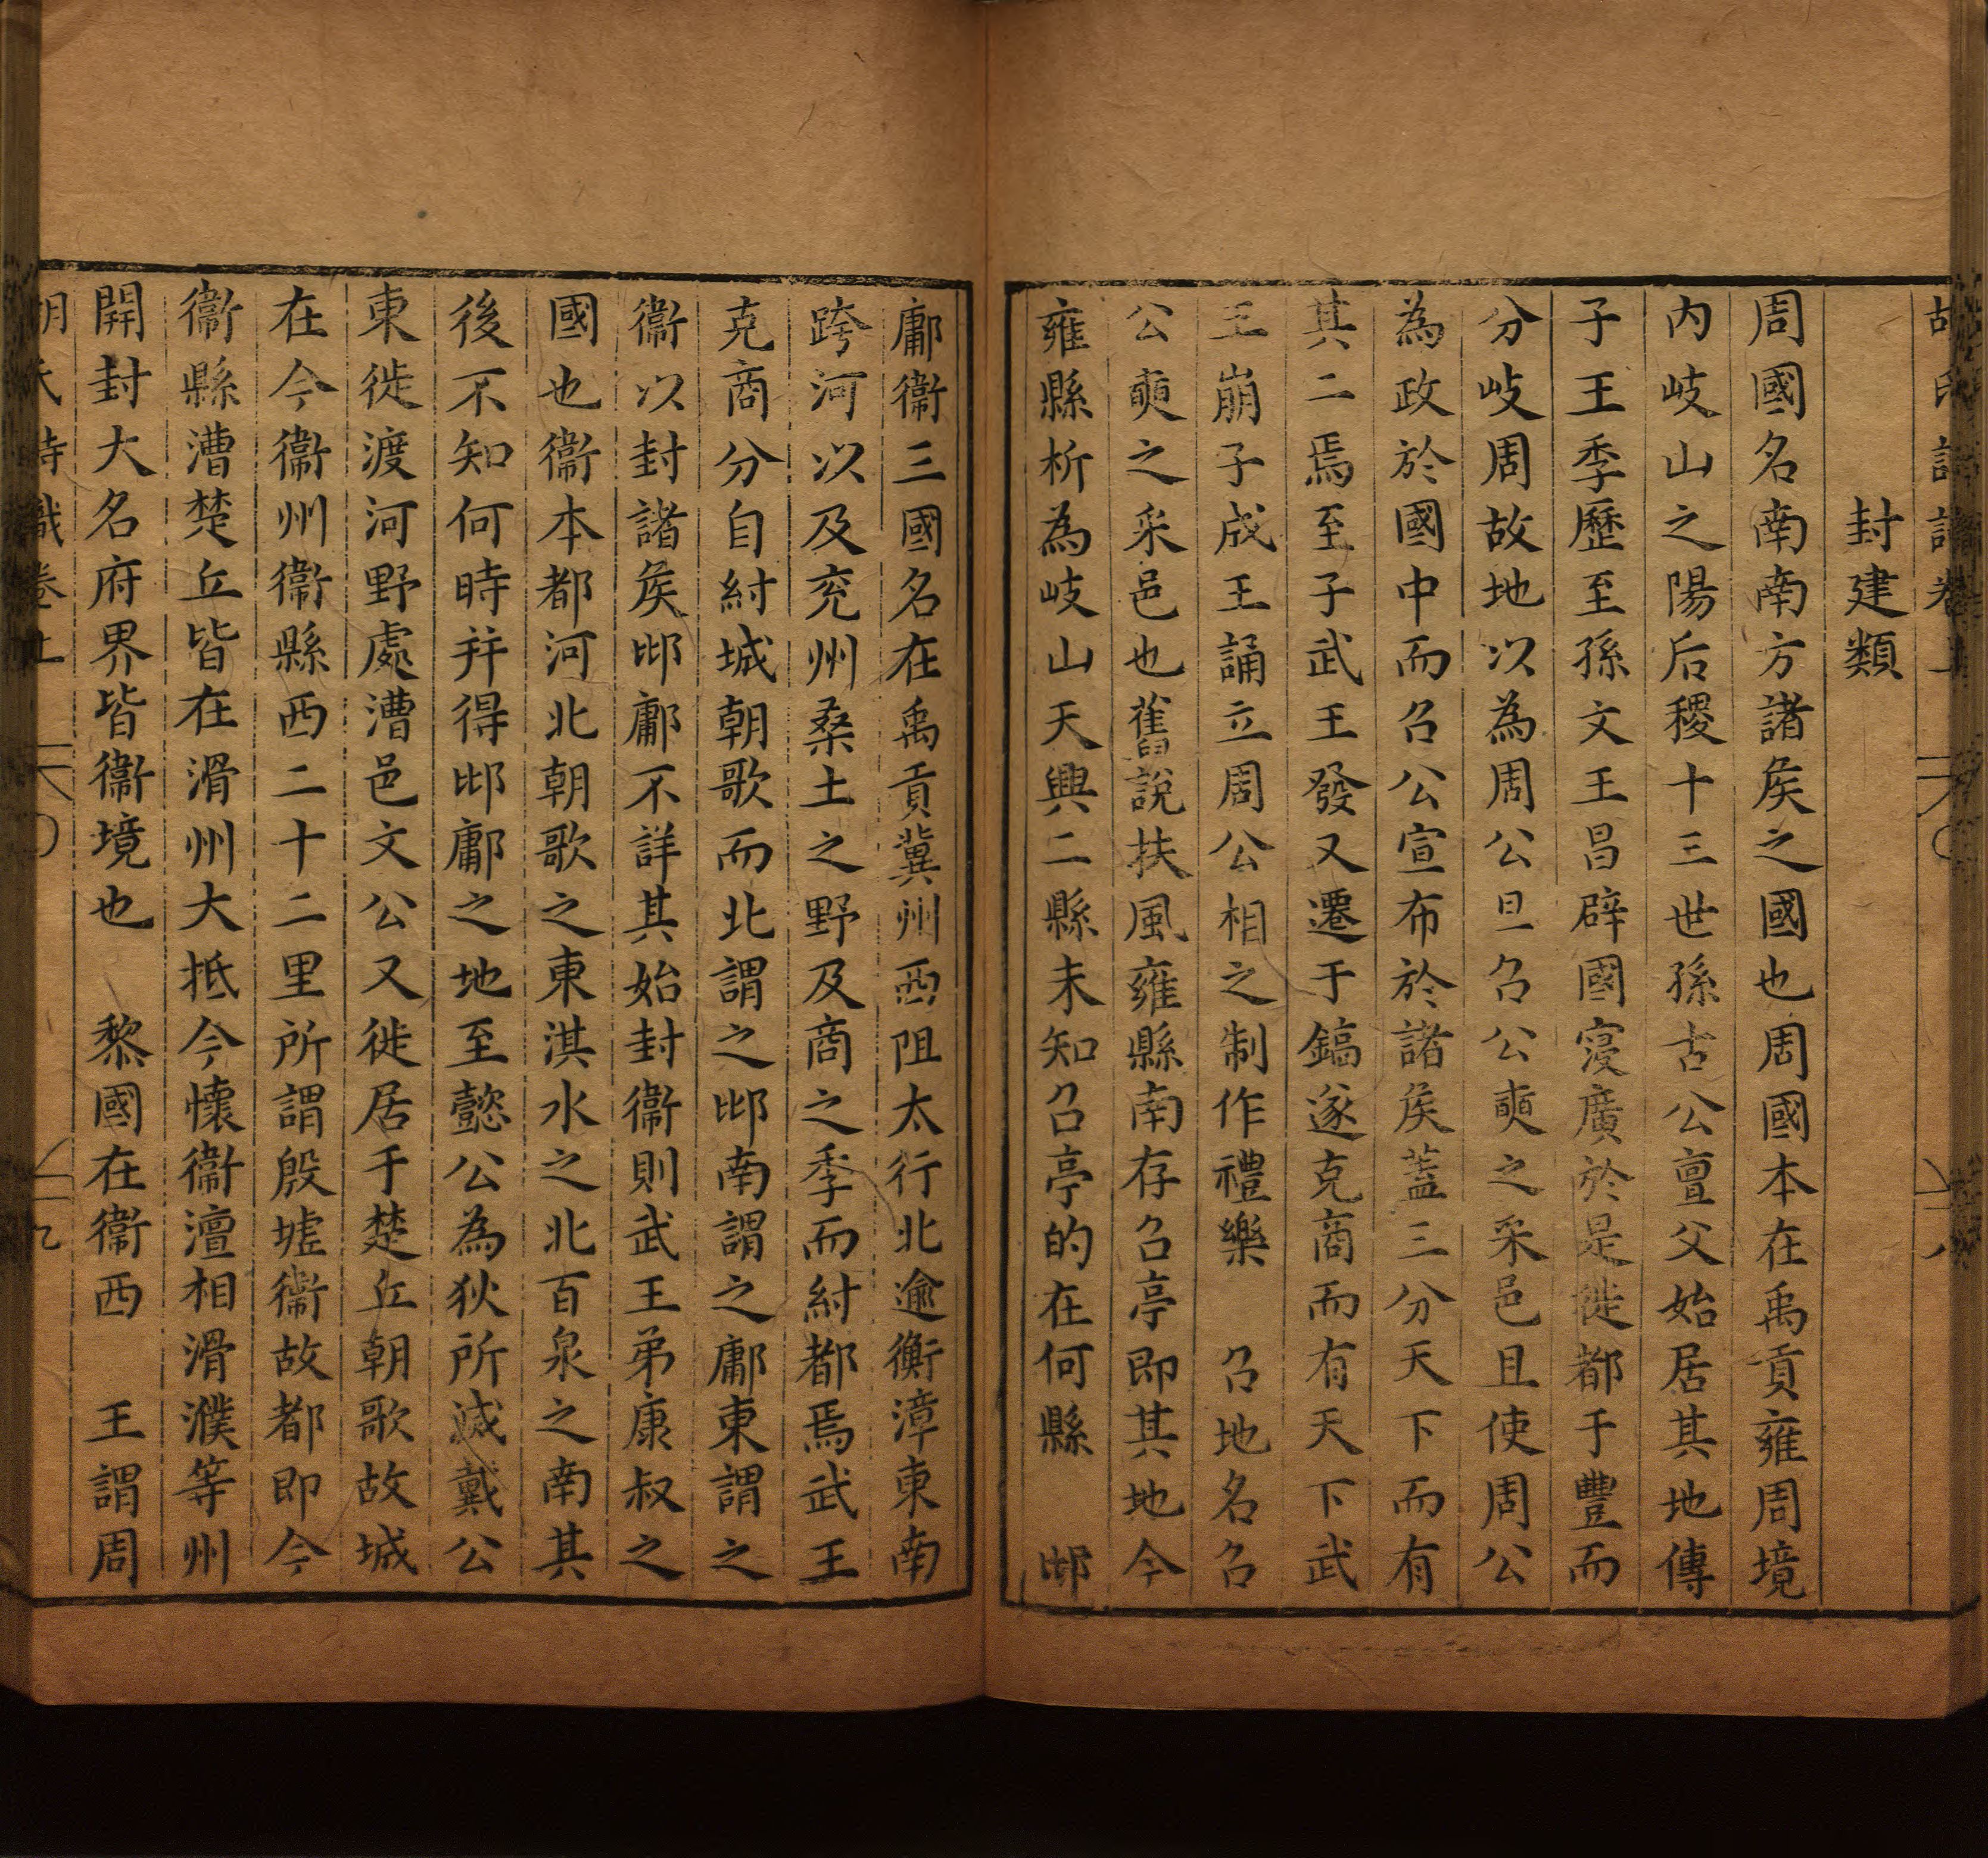 封建類
周國名南南方諸矦之國也周國本在禹貢雍周境
内岐山之陽后稷十三世孫古公亶父始居其地傳
子王季歷至孫文王昌辟國寖廣於是徙都于豐而
分岐周故地以為周公旦召公奭之采邑且使周公
為政於國中而召公宣布於諸矦蓋三分天下而有
其二焉至子武王發又遷于鎬遂克商而有天下武
王崩子成王誦立周公相之制作禮樂　召地名召
公奭之采邑也舊說扶風雍縣南存召亭即其地今
雍縣析為岐山天興二縣未知召亭的在何縣　邶
鄘衞三國名在禹貢冀州西阻太行北逾衡漳東南
跨河以及兖州桑土之野及商之季而紂都焉武王
克商分自紂城朝歌而北謂之邶南謂之鄘東謂之
衞以封諸矦邶鄘不詳其始封衞則武王弟康叔之
國也衞本都河北朝歌之東淇水之北百泉之南其
後不知何時并得邶鄘之地至懿公為狄所滅戴公
東徙渡河野處漕邑文公又徙居于楚丘朝歌故城
在今衞州衞縣西二十二里所謂殷墟衞故都即今
衞縣漕楚丘皆在滑州大抵今懷衞澶相滑濮等州
開封大名府界皆衞境也　黎國在衞西　王謂周